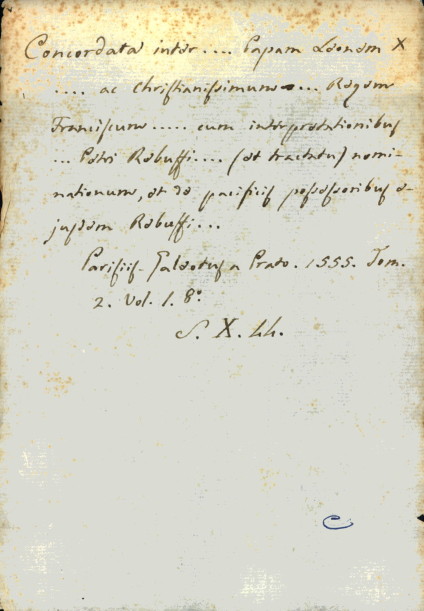 Concordata inter .... Papam Leonem X
..... ac Christianissimum .... Regem
Franciscum ..... cum interpretationibus
... Petri Rebuffi .... (et tractatus) nomi-
nationum, et de pacificis possessoribus e-
jusdem Rebuffi ...
Parisiis - Galeotus a Prato. 1555. Tom.
2. Vol. 1. 8º
S. X. 44.
C